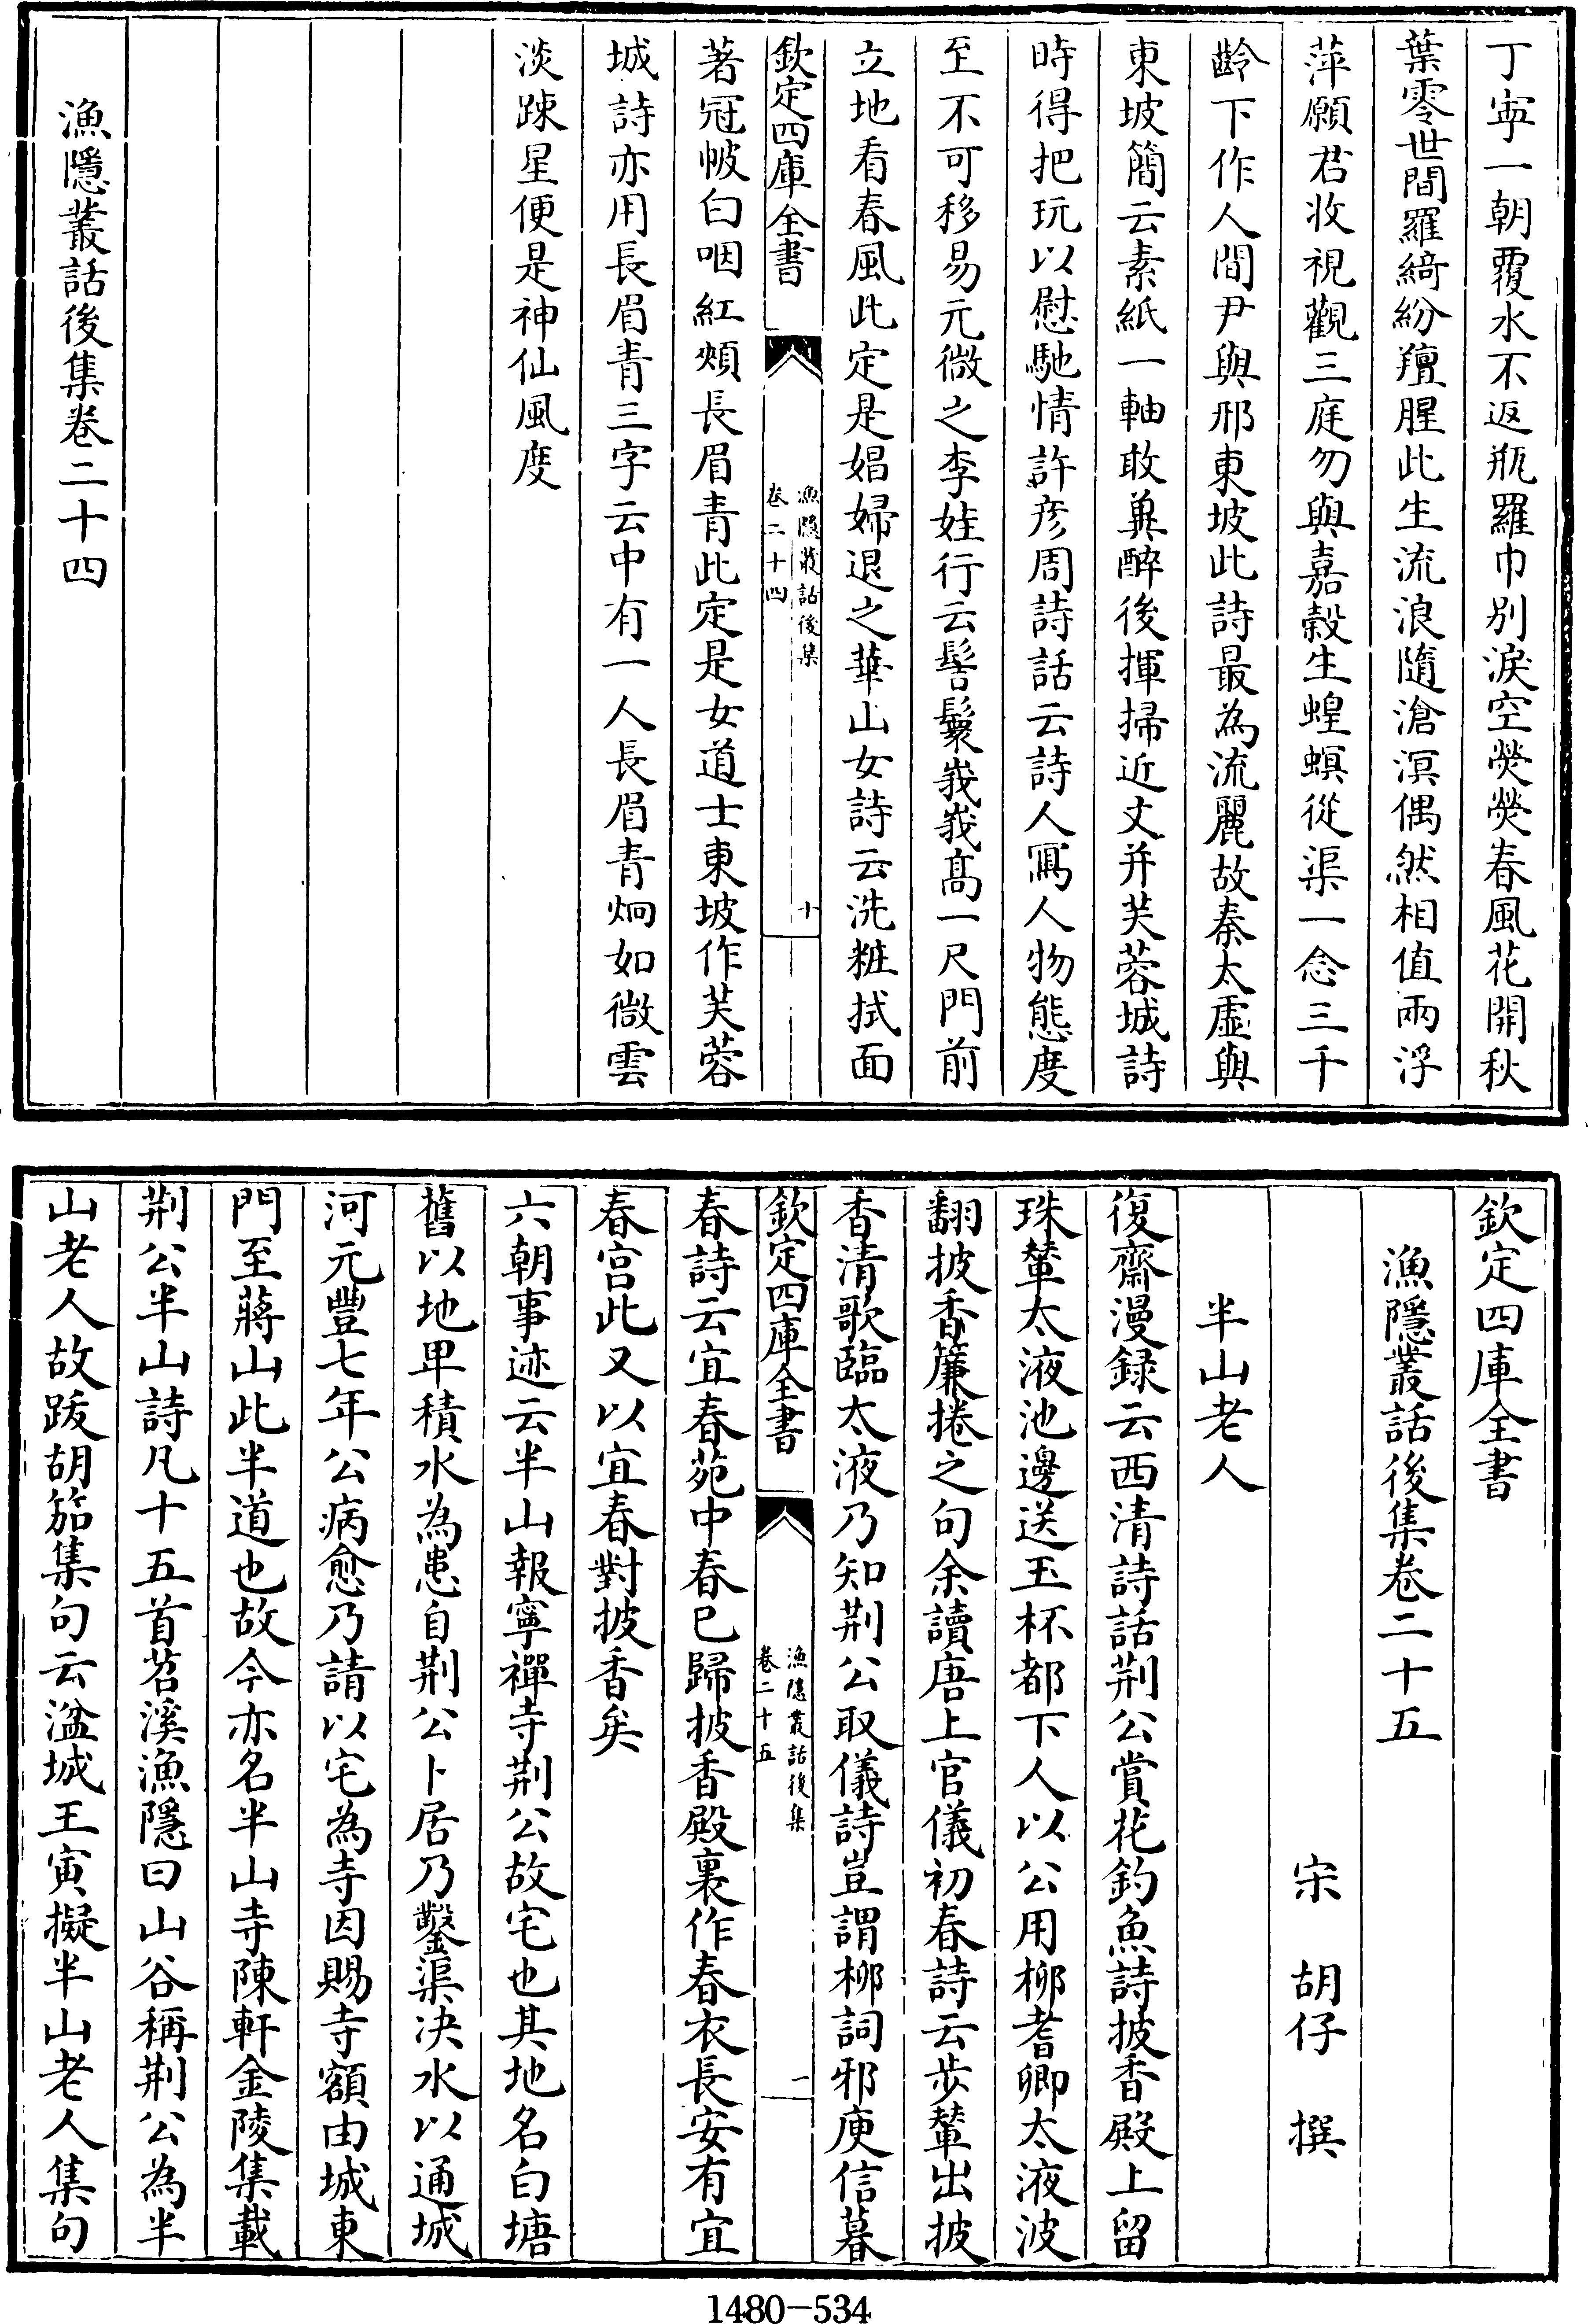 丁寜一朝覆水不返瓶羅巾别淚空熒熒春風花開秋
葉零世間羅綺紛羶腥此生流浪隨滄溟偶然相值兩浮
萍願君收視觀三庭勿與嘉穀生蝗螟從渠一念三千
齡下作人間尹與邢東坡此詩最為流麗故秦太虛與
東坡簡云素紙一軸敢兾醉後揮掃近文并芙蓉城詩
時得把玩以慰馳情許彦周詩話云詩人寫人物態度
至不可移易元微之李娃行云髻鬟峩峩髙一尺門前
立地看春風此定是娼婦退之華山女詩云洗粧拭面
欽定四庫全書
漁隱叢話後集
卷二十四
十
著冠帔白咽紅頰長眉青此定是女道士東坡作芙蓉
城詩亦用長眉青三字云中有一人長眉青炯如微雲
淡踈星便是神仙風度
漁隱叢話後集卷二十四
欽定四庫全書
漁隱叢話後集卷二十五
宋 胡仔 撰
半山老人
復齋漫録云西清詩話荆公賞花釣魚詩披香殿上留
珠輦太液池邊送玉杯都下人以公用柳耆卿太液波
翻披香簾捲之句余讀唐上官儀初春詩云步輦出披
香清歌臨太液乃知荆公取儀詩豈謂柳詞邪庾信暮
欽定四庫全書
漁隱叢話後集
卷二十五
一
春詩云宜春苑中春已歸披香殿裏作春衣長安有宜
春宫此又以宜春對披香矣
六朝事迹云半山報寧禪寺荆公故宅也其地名白塘
舊以地卑積水為患自荆公卜居乃鑿渠决水以通城
河元豐七年公病愈乃請以宅為寺因賜寺額由城東
門至蔣山此半道也故今亦名半山寺陳軒金陵集載
荆公半山詩凡十五首苕溪漁隱曰山谷稱荆公為半
山老人故跋胡笳集句云湓城王寅擬半山老人集句
1480-534